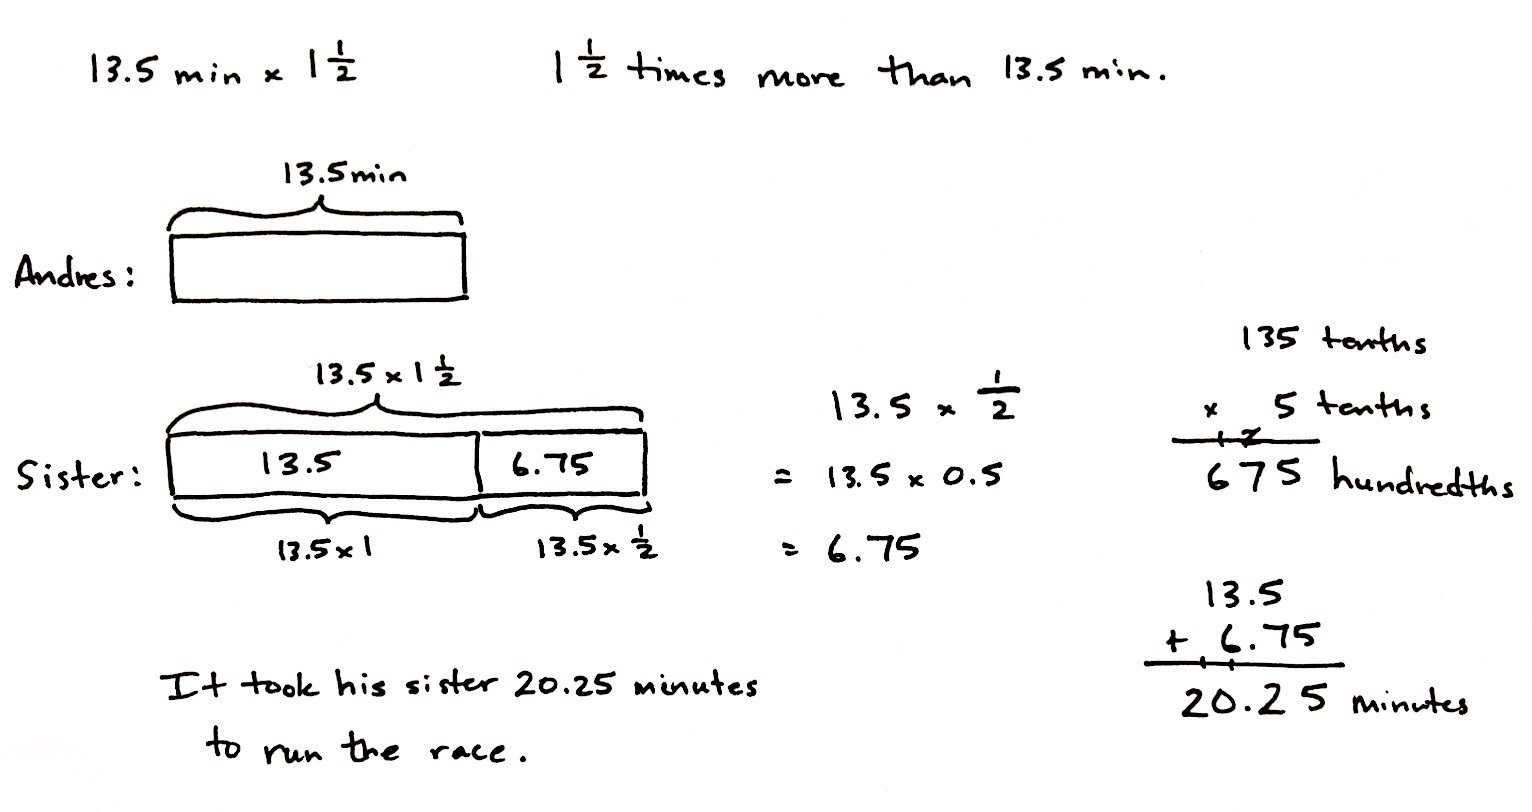 13.5 min × 1 1/2
1 1/2 times more than 13.5 min.
13.5 min
Andres:
13.5 × 1 1/2
Sister:
13.5
6.75
13.5 × 1
13.5 × 1/2
13.5 × 1/2
= 13.5 × 0.5
= 6.75
135 tenths
× 5 tenths
1 2
675 hundredths
13.5
+ 6.75
20.25 minutes
It took his sister 20.25 minutes
to run the race.